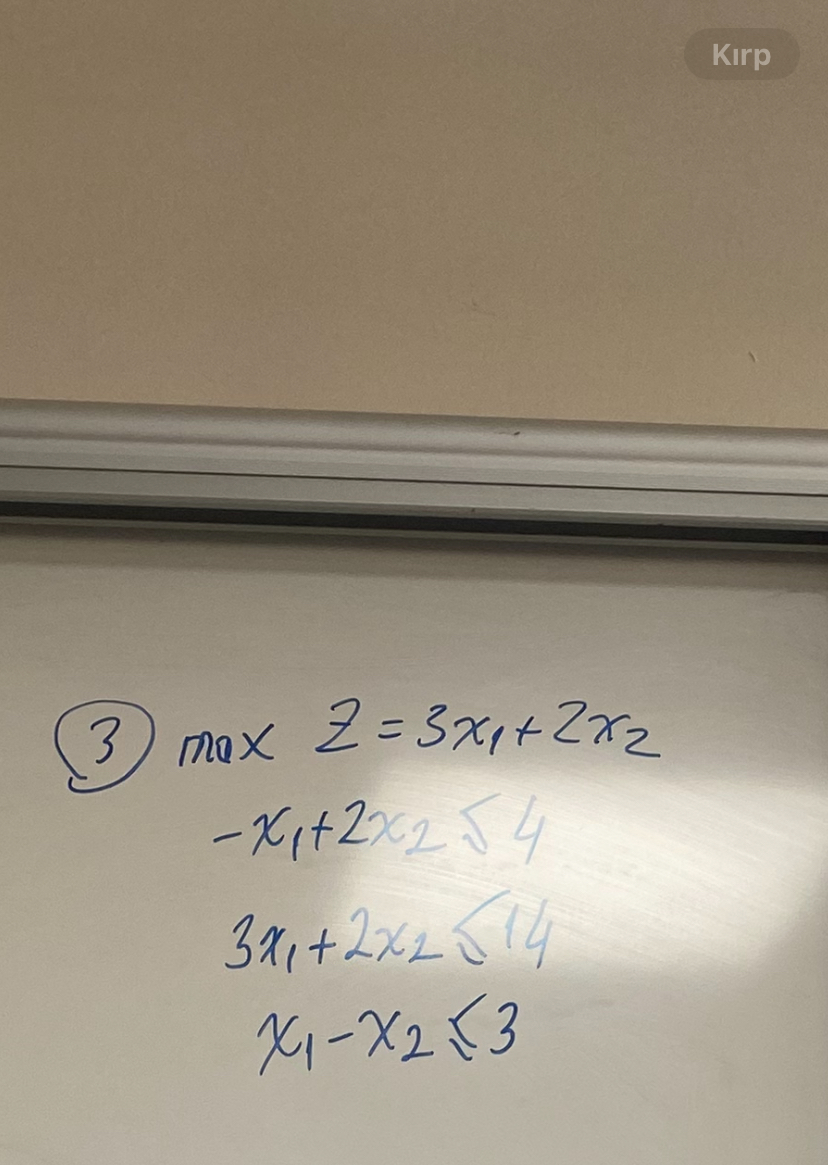 Kırp
③ max Z = 3x₁ + 2x₂
-x₁ + 2x₂ ≤ 4
3x₁ + 2x₂ ≤ 14
x₁ - x₂ ≤ 3